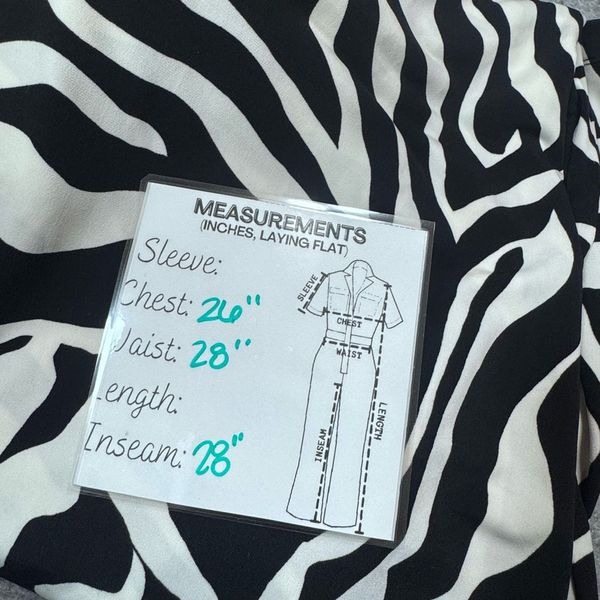 MEASUREMENTS
(INCHES, LAYING FLAT)
Sleeve:
Chest: 26"
Waist: 28"
Length:
Inseam: 28"
SLEEVE
CHEST
WAIST
INSEAM
LENGTH